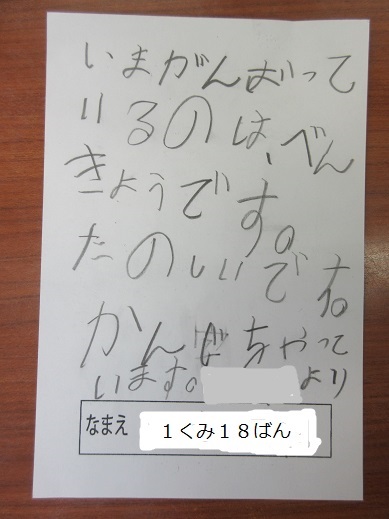 いまがんばって
いるのは、べん
きょうです。
たのしいです。
かんぜちゃって
います。 より
なまえ 1くみ18ばん